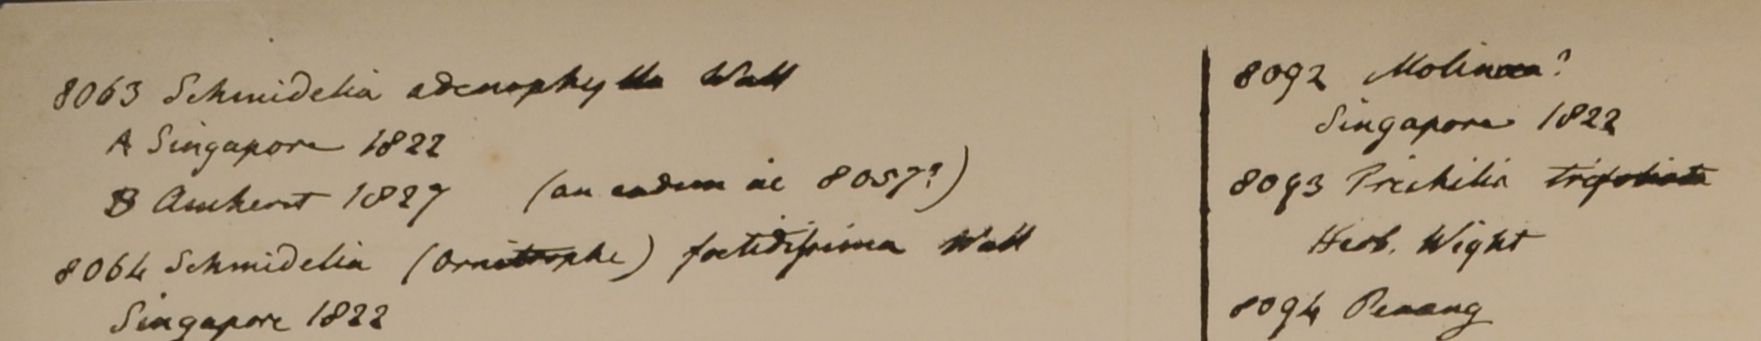 8063 Schmidelia adenophylla Wall
A Singapore 1822
B Amherst 1827 (an eadem ac 8057?)
8064 Schmidelia (Ornitrophe) foetidissima Wall
Singapore 1822
8092 Molinaea?
Singapore 1822
8093 Trichilia trifoliata
Herb. Wight
8094 Penang